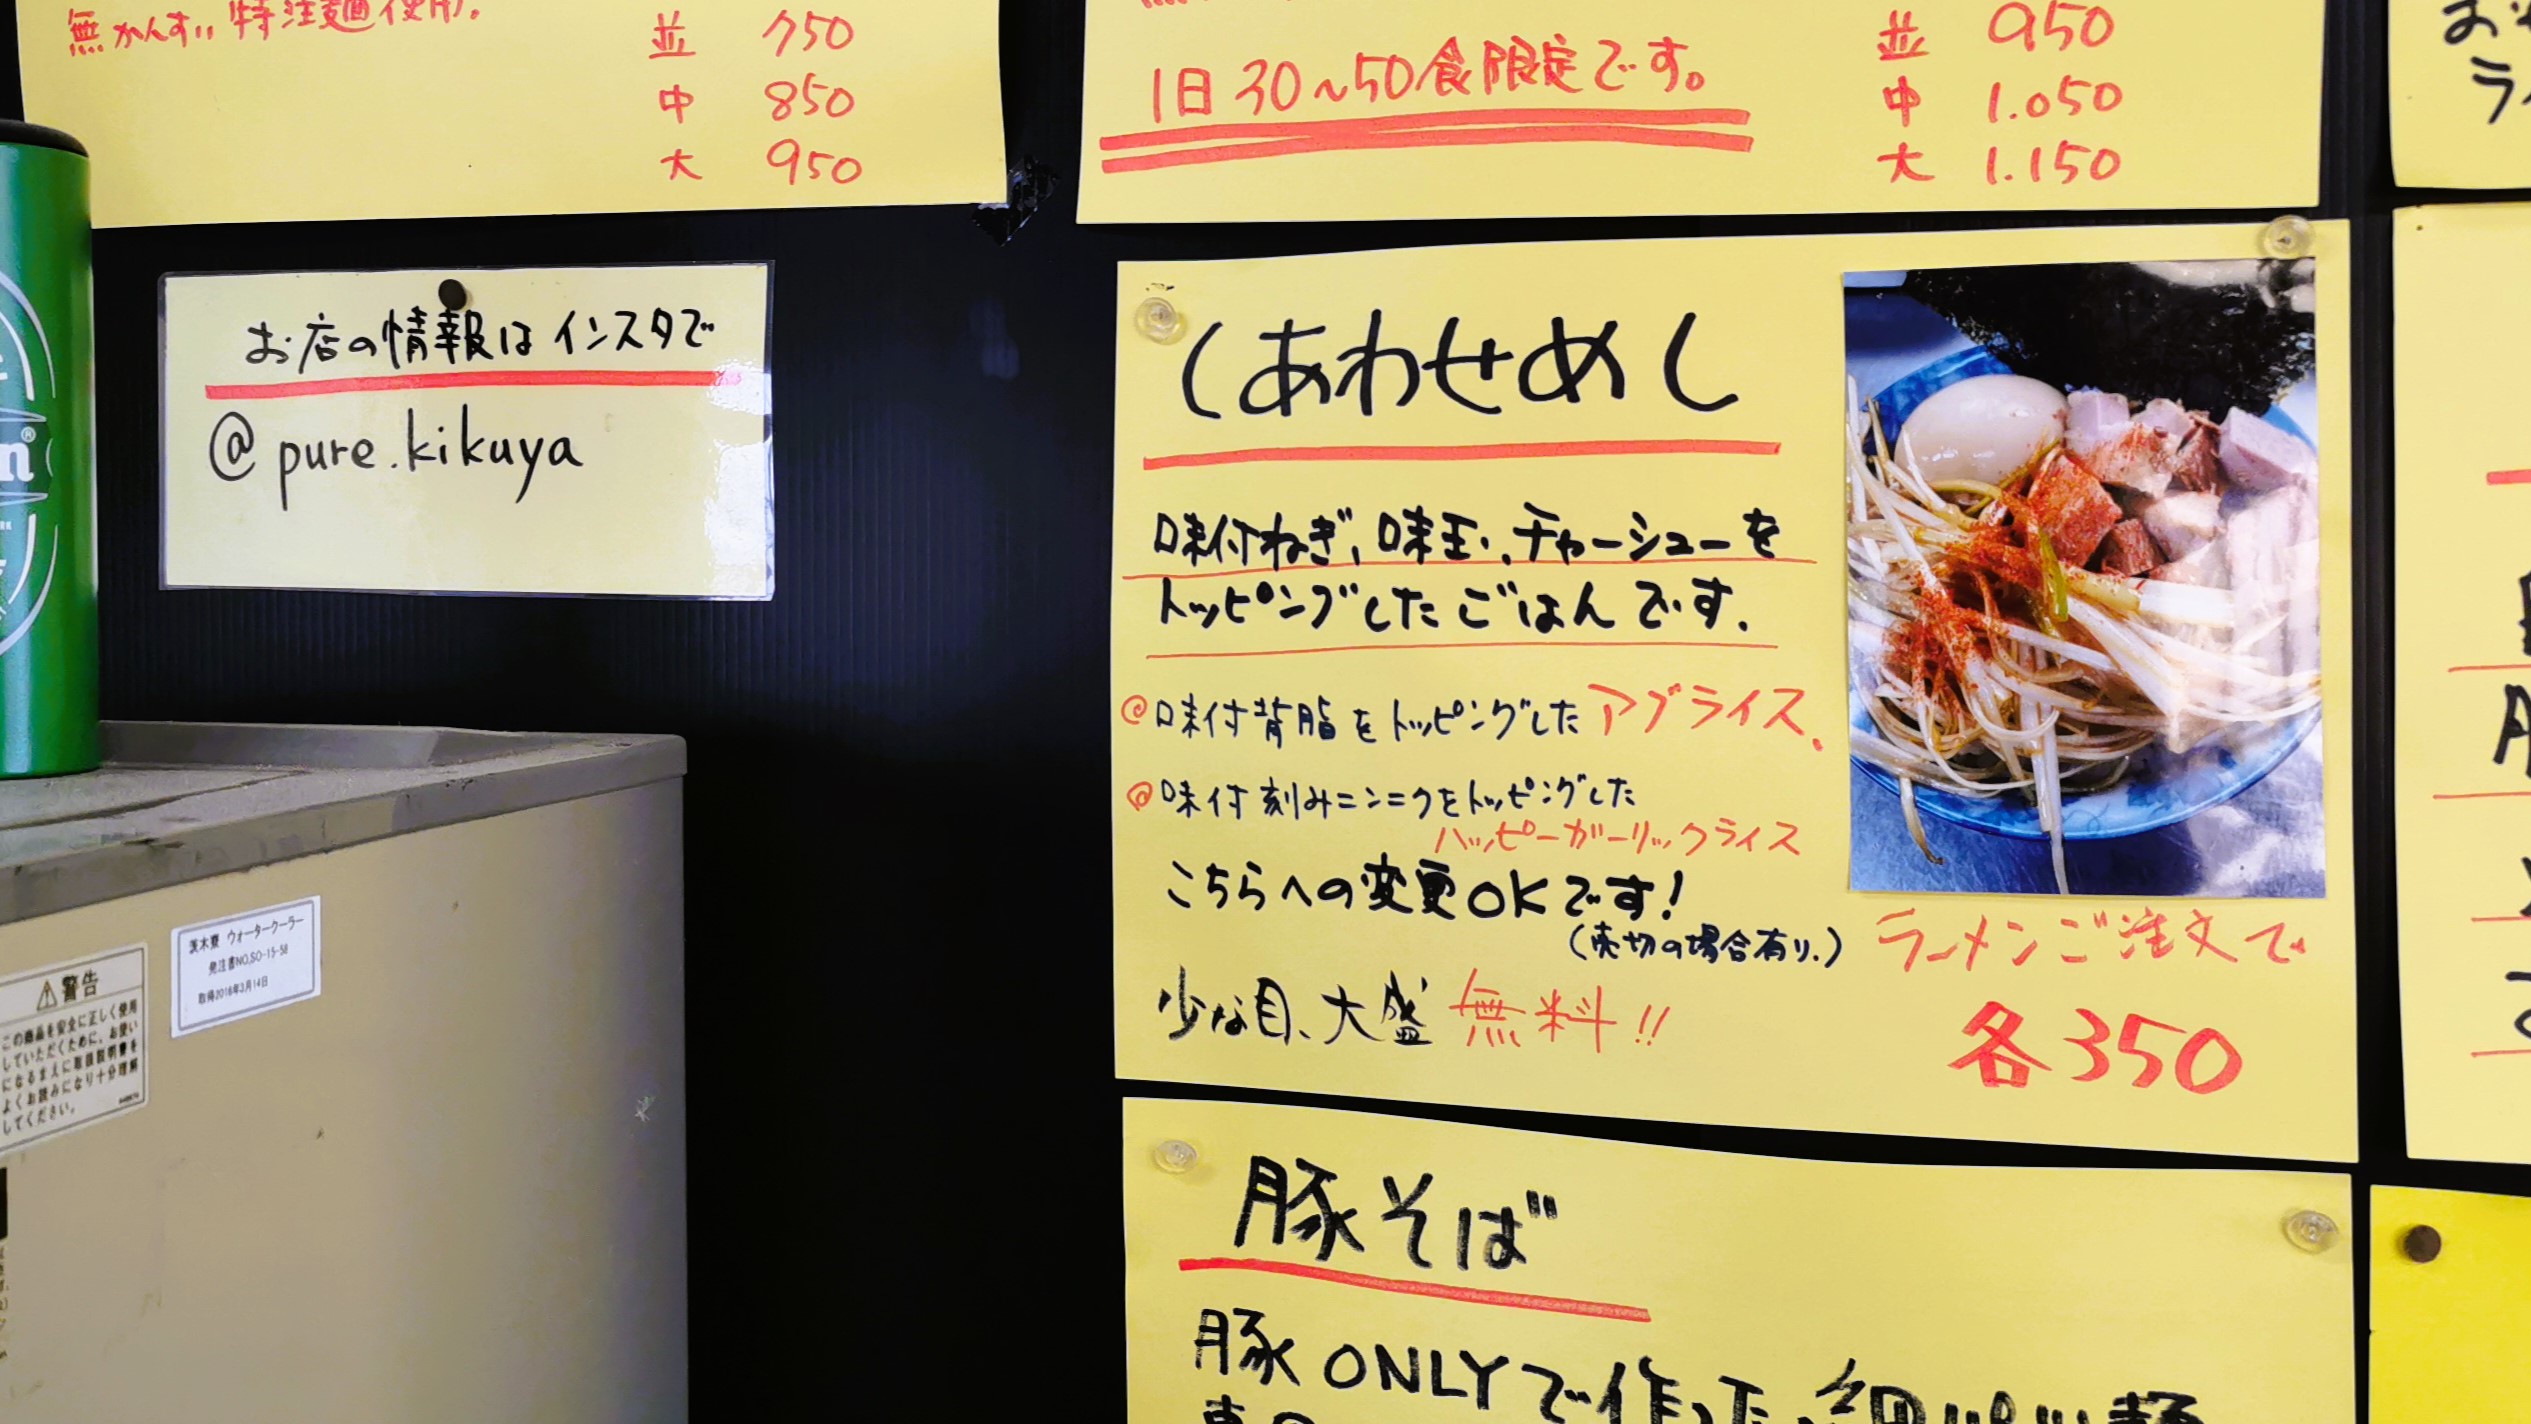 無かんすい特注麺使用。
並 750
中 850
大 950
1日30〜50食限定です。
並 950
中 1.050
大 1.150
お店の情報はインスタで
@pure.kikuya
しあわせめし
味付ねぎ、味玉、チャーシューを
トッピングしたごはんです。
@味付背脂をトッピングしたアブライス、
@味付刻みニンニクをトッピングした
ハッピーガーリックライス
こちらへの変更OKです!
(売切の場合有り。)
少な目、大盛無料!!
ラーメンご注文で
各350
豚そば
豚ONLYで作った
茨木寮 ウォータークーラー
発注書NO.SO-15-58
取得2016年3月14日
警告
この商品を安全に正しく使用
していただくために、お使い
になるまえに取扱説明書を
よくお読みになり十分理解
してください。